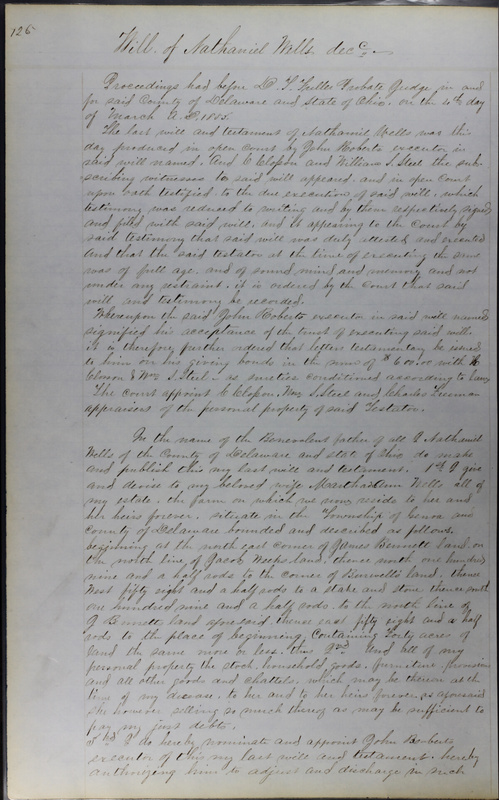 126
Will. of Nathaniel Wells dec.
Proceedings had before D. T. Fuller Probate Judge in and
for said County of Delaware and State of Ohio. on the 4th day
of March A. D. 1885.
The last will and testament of Nathaniel Wells was this
day produced in open court by John Roberts executor in
said will named. And C Clopson and William S. Steel the sub-
scribing witnesses to said will appeared, and in open Court
upon oath testified to the due execution of said will, which
testimony was reduced to writing and by them respectively signed
and filed with said will, and it appearing to the Court by
said testimony that said will was duly attested and executed
And that the said testator at the time of executing the same
was of full age, and of sound mind and memory and not
under any restraint, it is ordered by the court that said
will and testimony be recorded.
Whereupon the said John Roberts executor in said will named
signified his acceptance of the trust of executing said will.
it is therefore further ordered that letters testamentary be issued
to him on his giving bonds in the sum of $600.00 with
& Wm S. Steel - as sureties conditioned according to law,
The court appoint C Clopson, Wm S. Steel and Charles
appraisers of the personal property of said Testator.
In the name of the Benevolent father of all I Nathaniel
Wells of the County of Delaware and state of Ohio do make
and publish this my last will and testament. 1st I give
and devise to my beloved wife Wells all of
my estate. the farm on which we now reside to her and
her heirs forever, situate in the Township of and
County of Delaware bounded and described as follows,
beginning at the north east corner of James Bennett land. on
the north line of Jacob land. thence north one hundred
nine and a half rods to the corner of land, thence
West fifty eight and a half rods to a stake and stone thence south
one hundred nine and a half rods. to the north line of
J Bennetts land aforesaid. thence east fifty eight and a half
rods to the place of beginning. Containing forty acres of
land the same more or less. this 2nd And all of my
personal property the stock, household goods. furniture, provision
and all other goods and chattels. which may be thereon at the
time of my decease, to her and to her heirs forever, as aforesaid
she however selling so much thereof as may be sufficient to
pay my just debts.
3rd I do hereby nominate and appoint John Roberts
executor of this my last will and testament. hereby
authorizing him to adjust and discharge in such